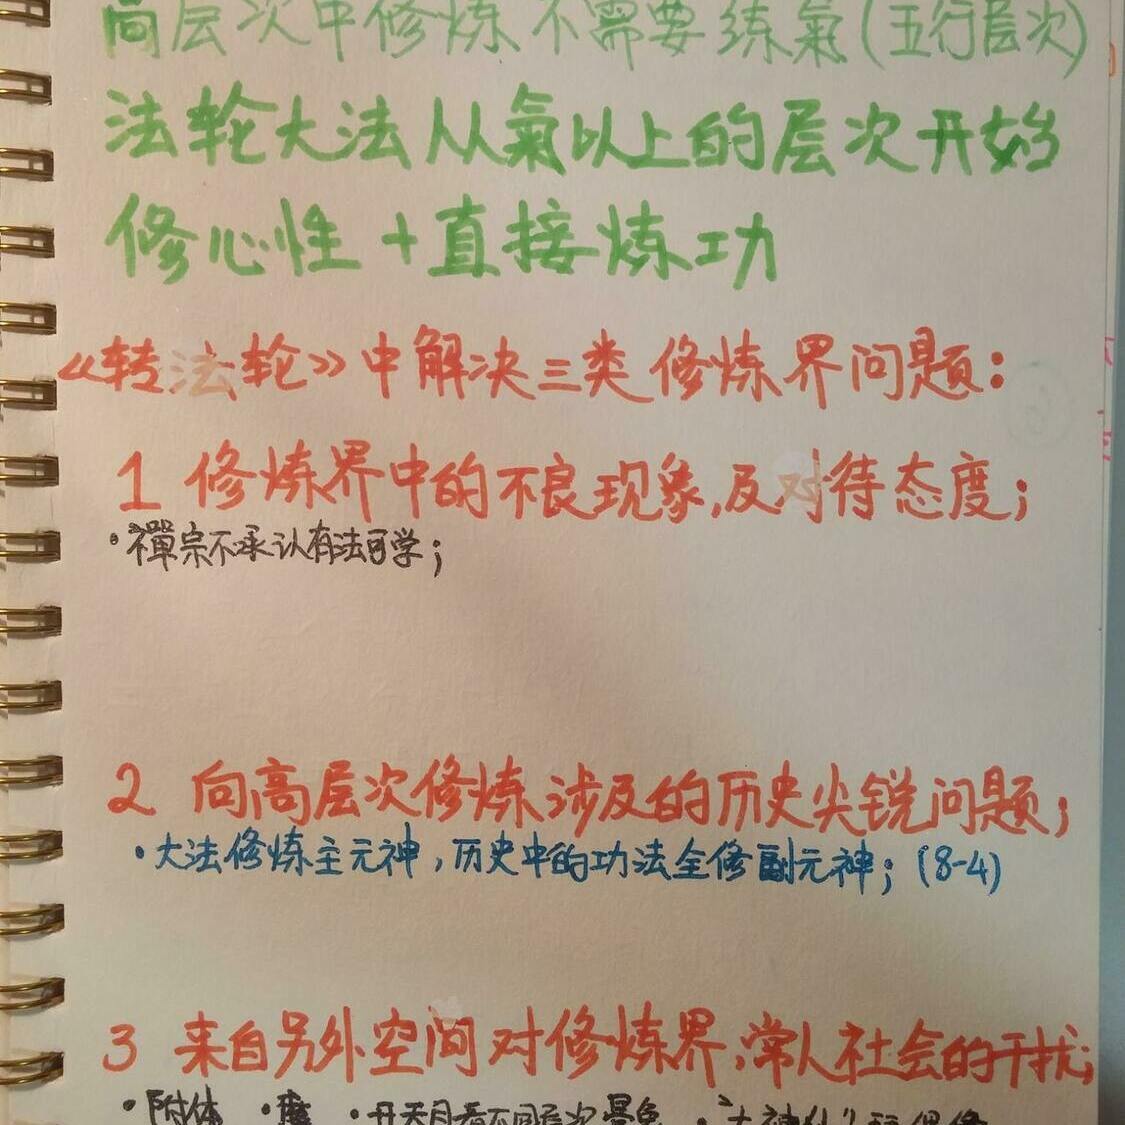 高层次中修炼不需要练氣(五行层次)
法轮大法从氣以上的层次开始
修心性+直接炼功
《转法轮》中解决三类修炼界问题:
1 修炼界中的不良现象,及对待态度;
·禪宗不承认有法可学;
2 向高层次修炼涉及的历史尖锐问题;
·大法修炼主元神,历史中的功法全修副元神;(8-4)
3 来自另外空间对修炼界,常人社会的干扰;
·附体 ·魔 ·开天目看不同层次景象